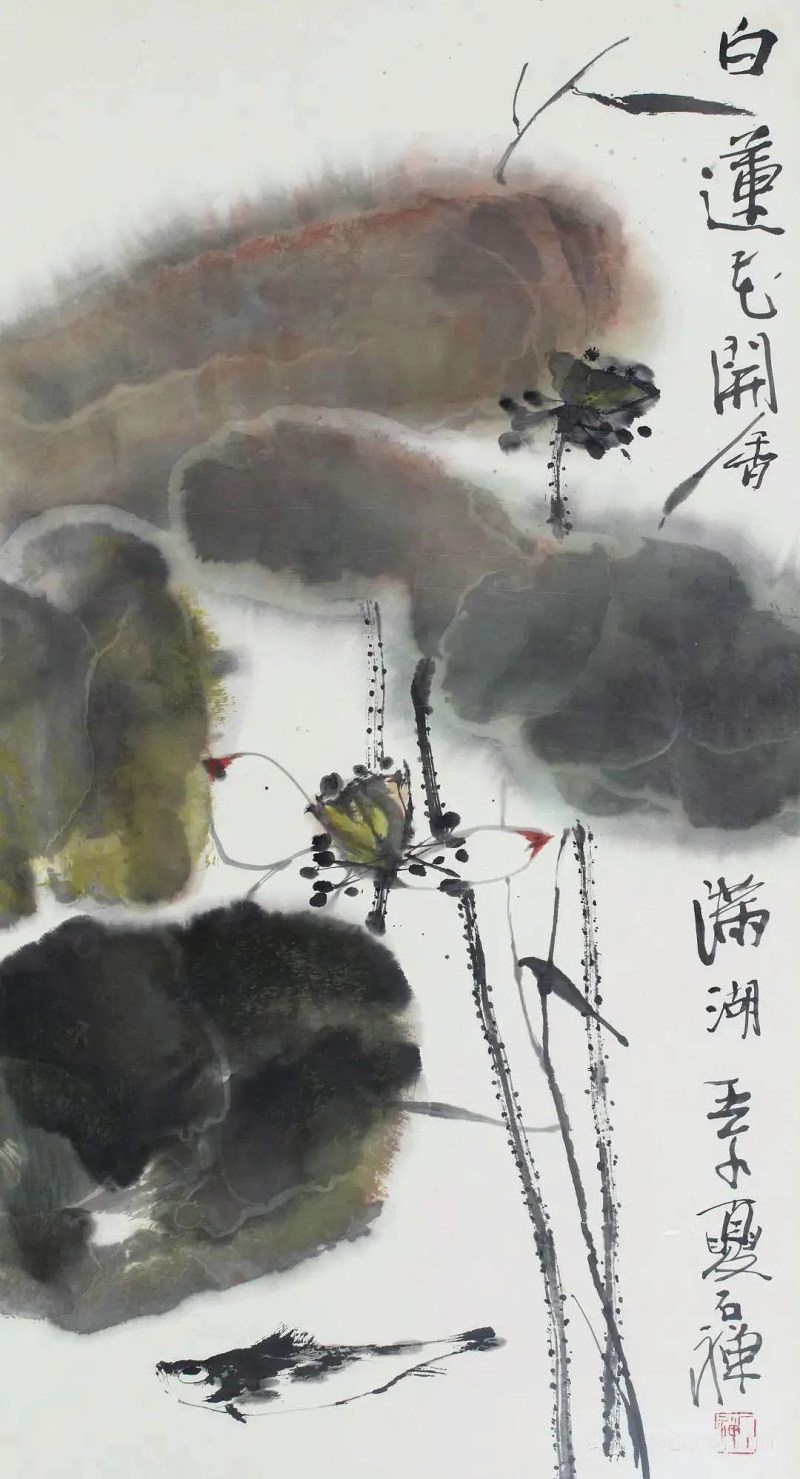 白蓮花開香滿湖 壬子夏石禪